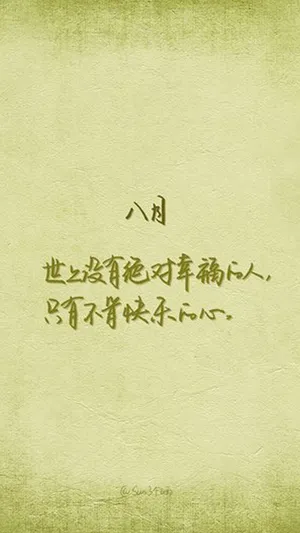 八月
世上没有绝对幸福的人，
只有不肯快乐的心。